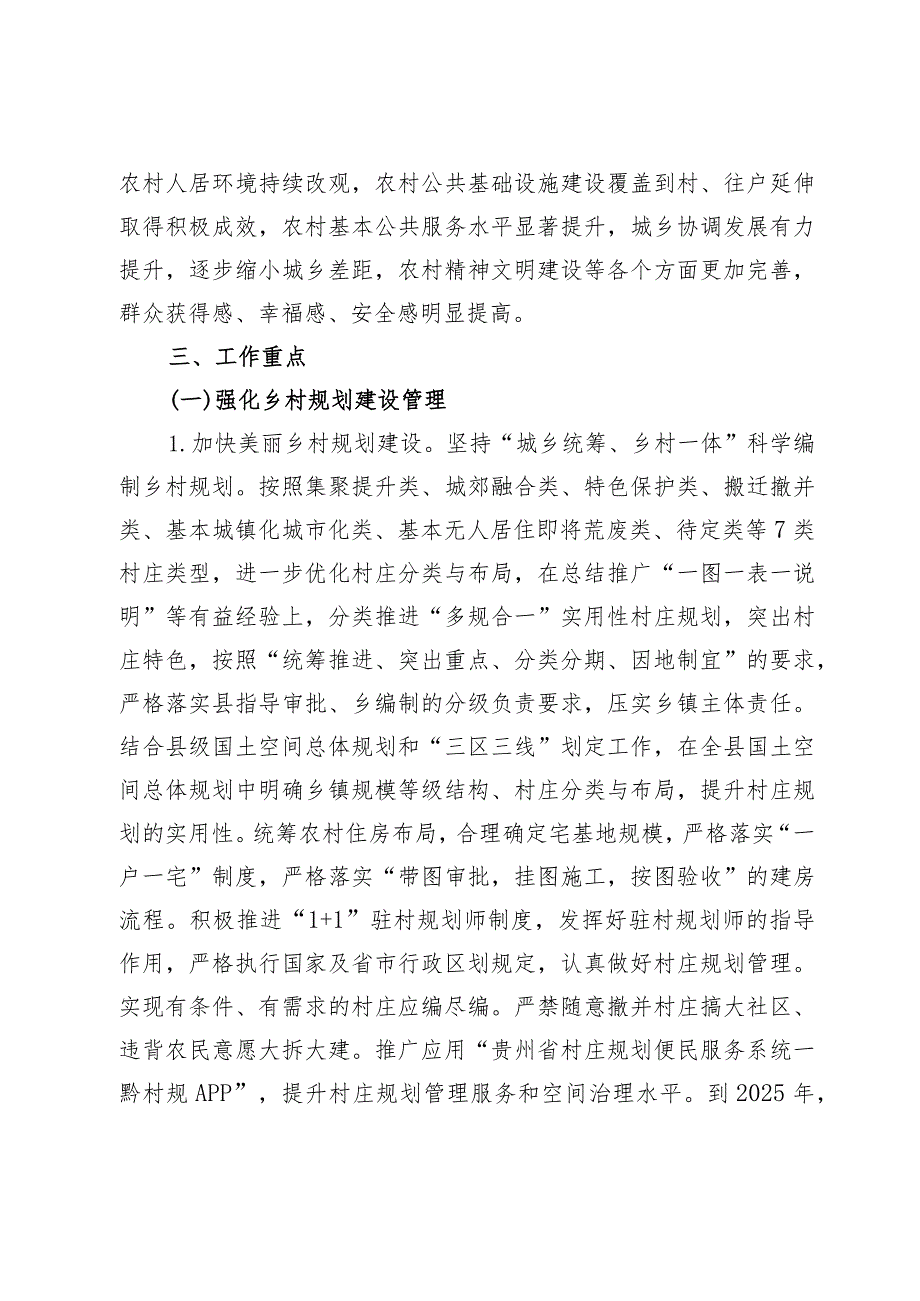 农村人居环境持续改观，农村公共基础设施建设覆盖到村、往户延伸
取得积极成效，农村基本公共服务水平显著提升，城乡协调发展有力
提升，逐步缩小城乡差距，农村精神文明建设等各个方面更加完善，
群众获得感、幸福感、安全感明显提高。
三、工作重点
(一)强化乡村规划建设管理
1.加快美丽乡村规划建设。坚持“城乡统筹、乡村一体”科学编
制乡村规划。按照集聚提升类、城郊融合类、特色保护类、搬迁撤并
类、基本城镇化城市化类、基本无人居住即将荒废类、待定类等7类
村庄类型，进一步优化村庄分类与布局，在总结推广“一图一表一说
明”等有益经验上，分类推进“多规合一”实用性村庄规划，突出村
庄特色，按照“统筹推进、突出重点、分类分期、因地制宜”的要求，
严格落实县指导审批、乡编制的分级负责要求，压实乡镇主体责任。
结合县级国土空间总体规划和“三区三线”划定工作，在全县国土空
间总体规划中明确乡镇规模等级结构、村庄分类与布局，提升村庄规
划的实用性。统筹农村住房布局，合理确定宅基地规模，严格落实“一
户一宅”制度，严格落实“带图审批，挂图施工，按图验收”的建房
流程。积极推进“1+1”驻村规划师制度，发挥好驻村规划师的指导
作用，严格执行国家及省市行政区划规定，认真做好村庄规划管理。
实现有条件、有需求的村庄应编尽编。严禁随意撤并村庄搞大社区、
违背农民意愿大拆大建。推广应用“贵州省村庄规划便民服务系统一
黔村规APP”，提升村庄规划管理服务和空间治理水平。到2025年，